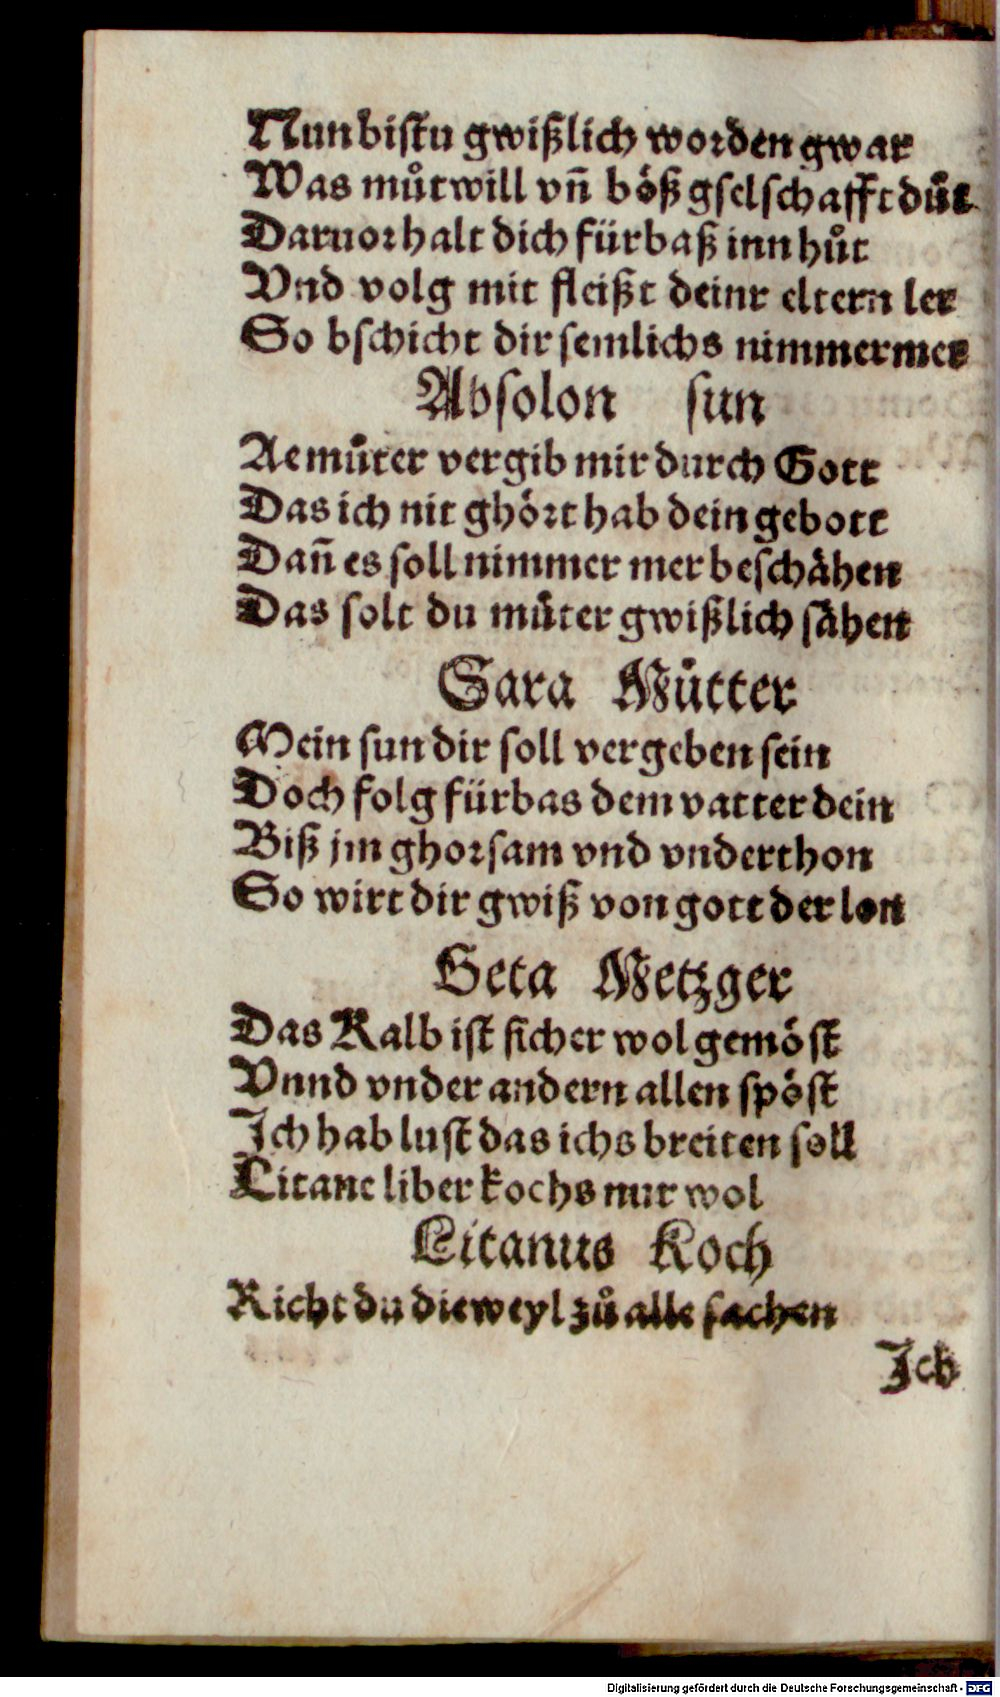 Nun bistu gwißlich worden gwar
Was můtwill vñ bôß gselschafft důt
Daruor halt dich fürbaß inn hůt
Vnd volg mit fleißt deinr eltern ler
So bschicht dir semlichs nimmermer
Absolon sun
Ae můter vergib mir durch Gott
Das ich nit ghôrt hab dein gebott
Dañ es soll nimmer mer beschåhen
Das solt du můter gwißlich såhen
Sara Můtter
Mein sun dir soll vergeben sein
Doch folg fürbas dem vatter dein
Biß jm ghorsam vnd vnderthon
So wirt dir gwiß von gott der lon
Geta Metzger
Das Kalb ist sicher wol gemôst
Vnnd vnder andern allen spôst
Ich hab lust das ichs breiten soll
Litane liber kochs nur wol
Litanus Koch
Richt du dieweyl zů alle sachen
Ich
Digitalisierung gefördert durch die Deutsche Forschungsgemeinschaft - DFG